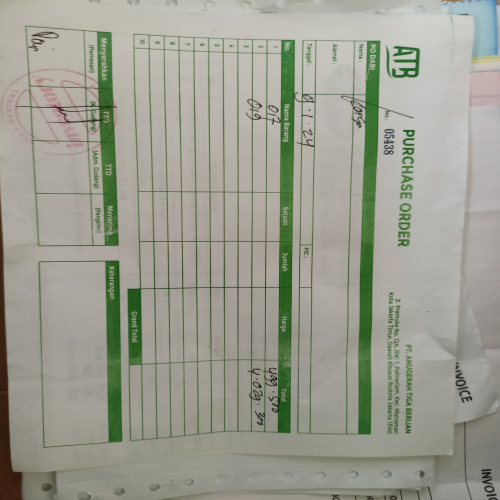 ATB
PURCHASE ORDER
No: 05438
PT. ANUGERAH TIGA BERLIAN
Jl. Pramuka No. 12A, RW. 1, Palmeriam, Kec. Matraman
Kota Jakarta Timur, Daerah Khusus Ibukota Jakarta 13140
PO DARI
Nama :
Alamat :
Tanggal : 8-1-24
PIC :
No. Nama Barang Satuan Jumlah Harga Total
1 017 499.500
2 019 4.029.300
3
4
5
6
7
8
9
10
Grand Total
Menyerahkan TTD TTD Menerima
(Pemesan) (Adm. Gudang) (Pengirim)
Keterangan
INVOICE